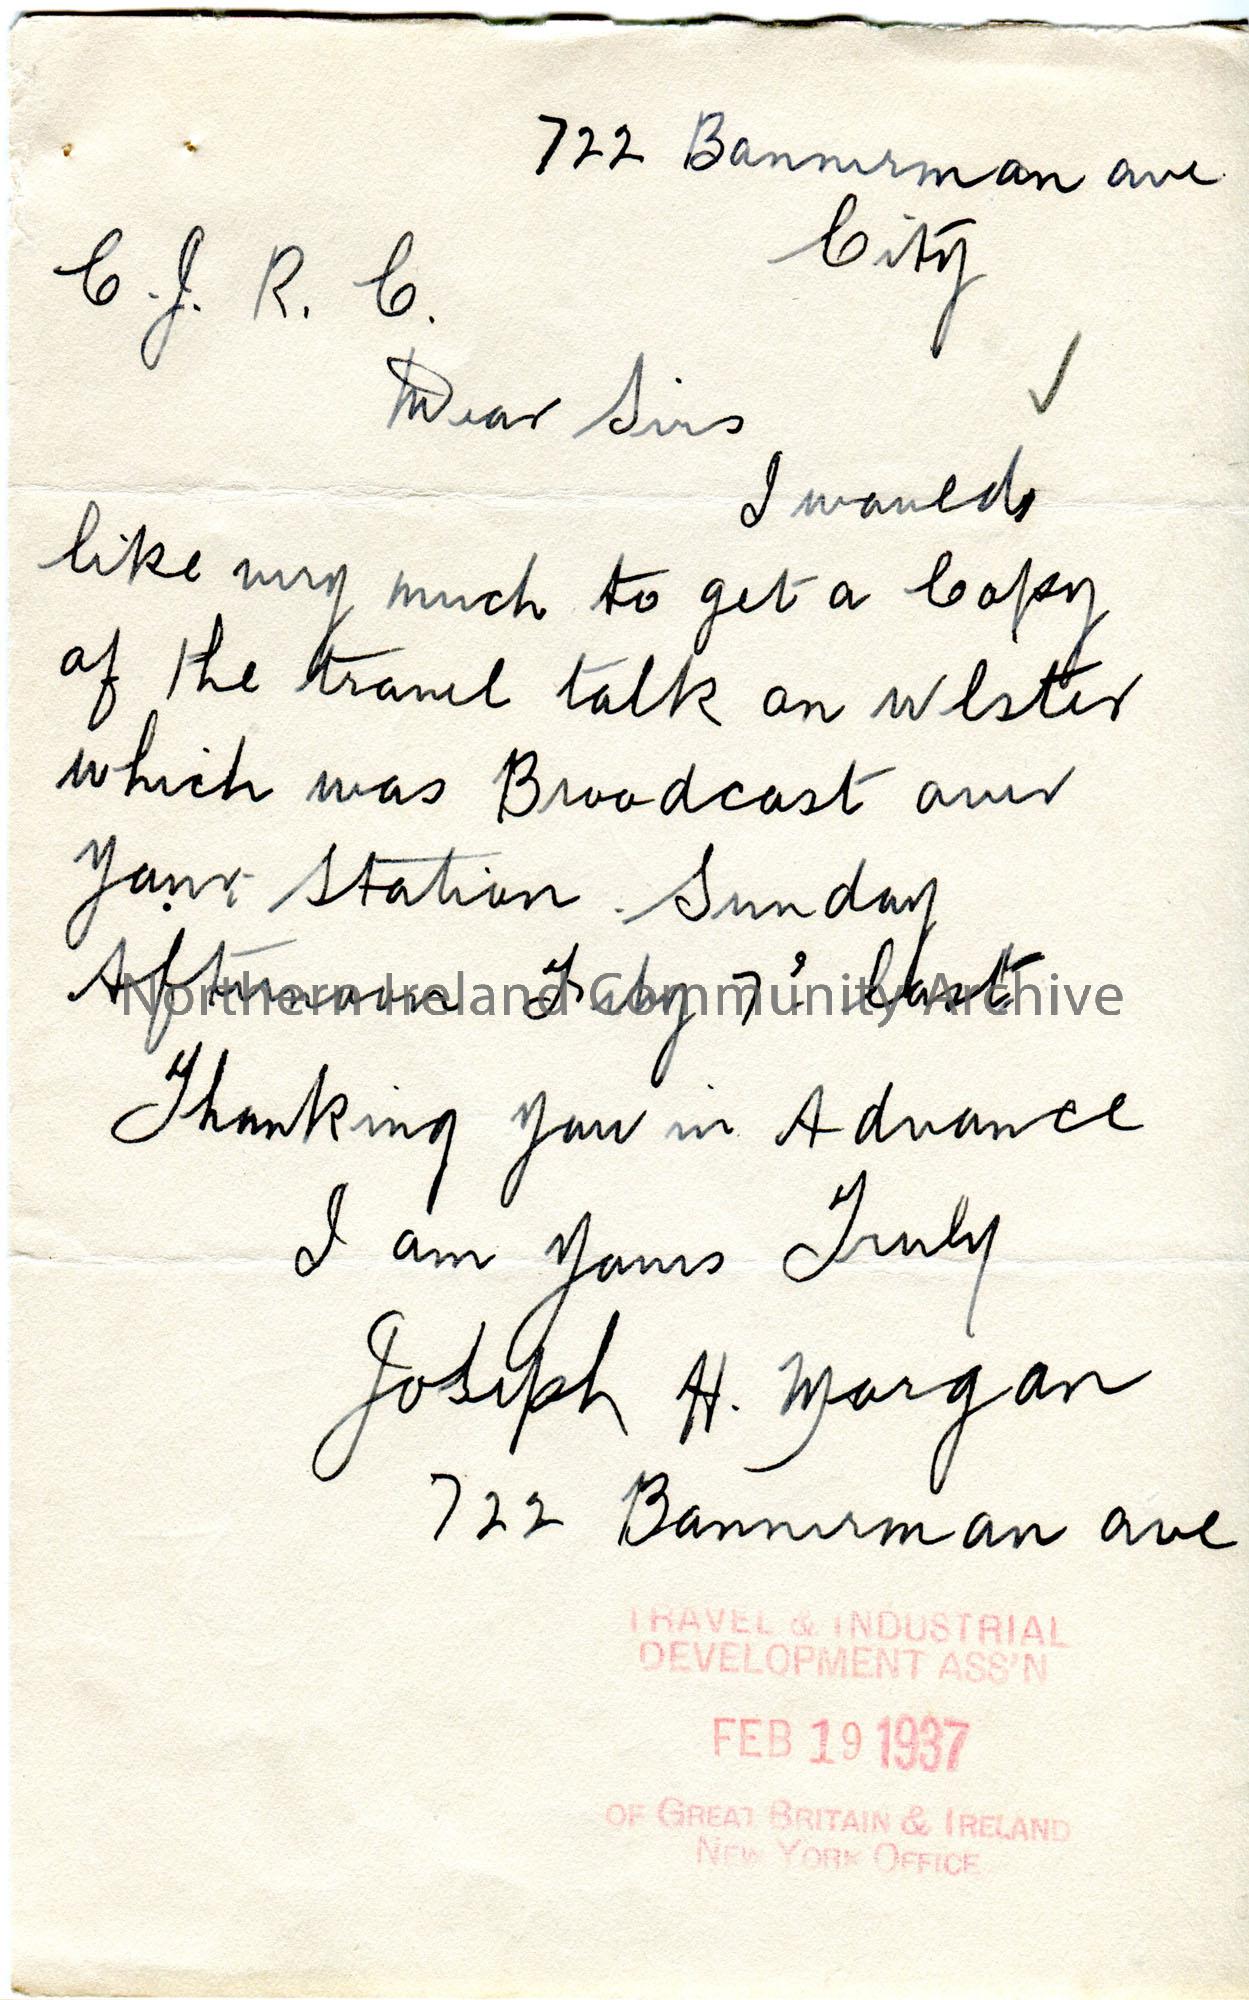 722 Bannerman ave
City
C.J.R.C.
Dear Sirs
I would
like very much to get a Copy
of the travel talk on Ulster
which was Broadcast over
your Station Sunday
Afternoon Feby 7' last
Northern Ireland Community Archive
Thanking you in Advance
I am yours Truly
Joseph H. Morgan
722 Bannerman ave
TRAVEL & INDUSTRIAL
DEVELOPMENT ASS'N
FEB 19 1937
OF GREAT BRITAIN & IRELAND
NEW YORK OFFICE